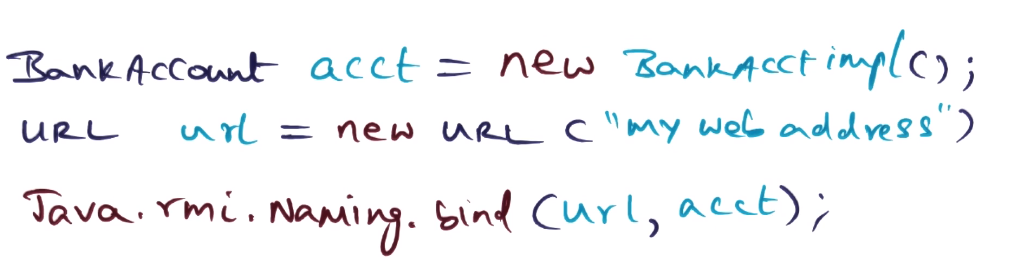 BankAccount acct = new BankAcctimpl();
URL url = new URL ("my web address")
Java.rmi.Naming.bind (url, acct);